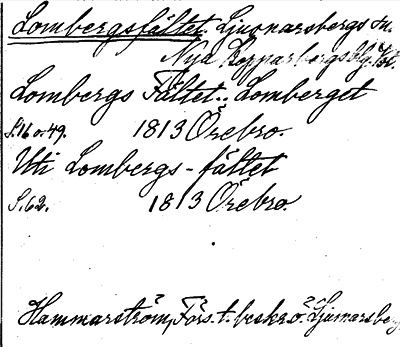 Lombergsfältet. Ljusnarsbergs sn.
Nya Kopparbergs blg. Öst.
Lombergs Fältet.. Lomberget
S.16 o. 49. 1813 Örebro.
Uti Lombergs-fältet
S.62. 1813 Örebro.
Hammarström, Förs. t. beskr. ö. Ljusnarsberg